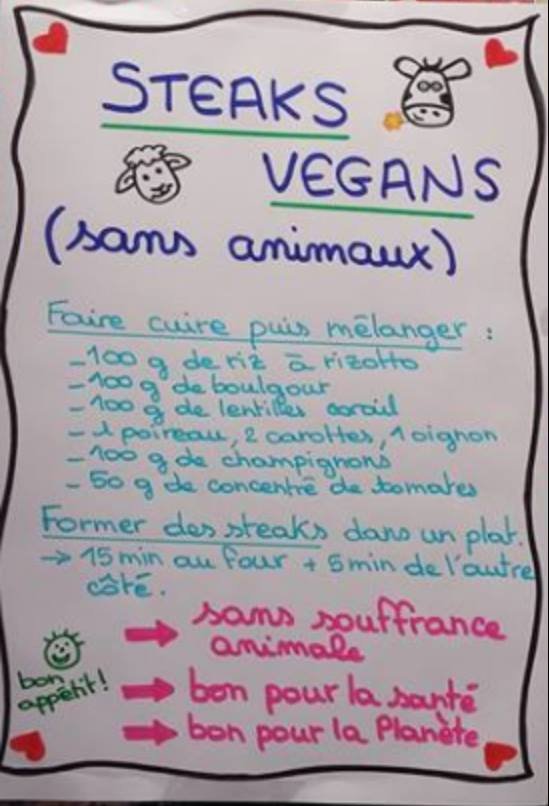 STEAKS
VEGANS
(sans animaux)
Faire cuire puis mélanger :
- 100 g de riz à rizotto
- 100 g de boulgour
- 100 g de lentilles corail
- 1 poireau, 2 carottes, 1 oignon
- 100 g de champignons
- 50 g de concentré de tomates
Former des steaks dans un plat.
→ 15 min au four + 5 min de l'autre
côté.
→ sans souffrance
animale
bon
appétit!
→ bon pour la santé
→ bon pour la Planète